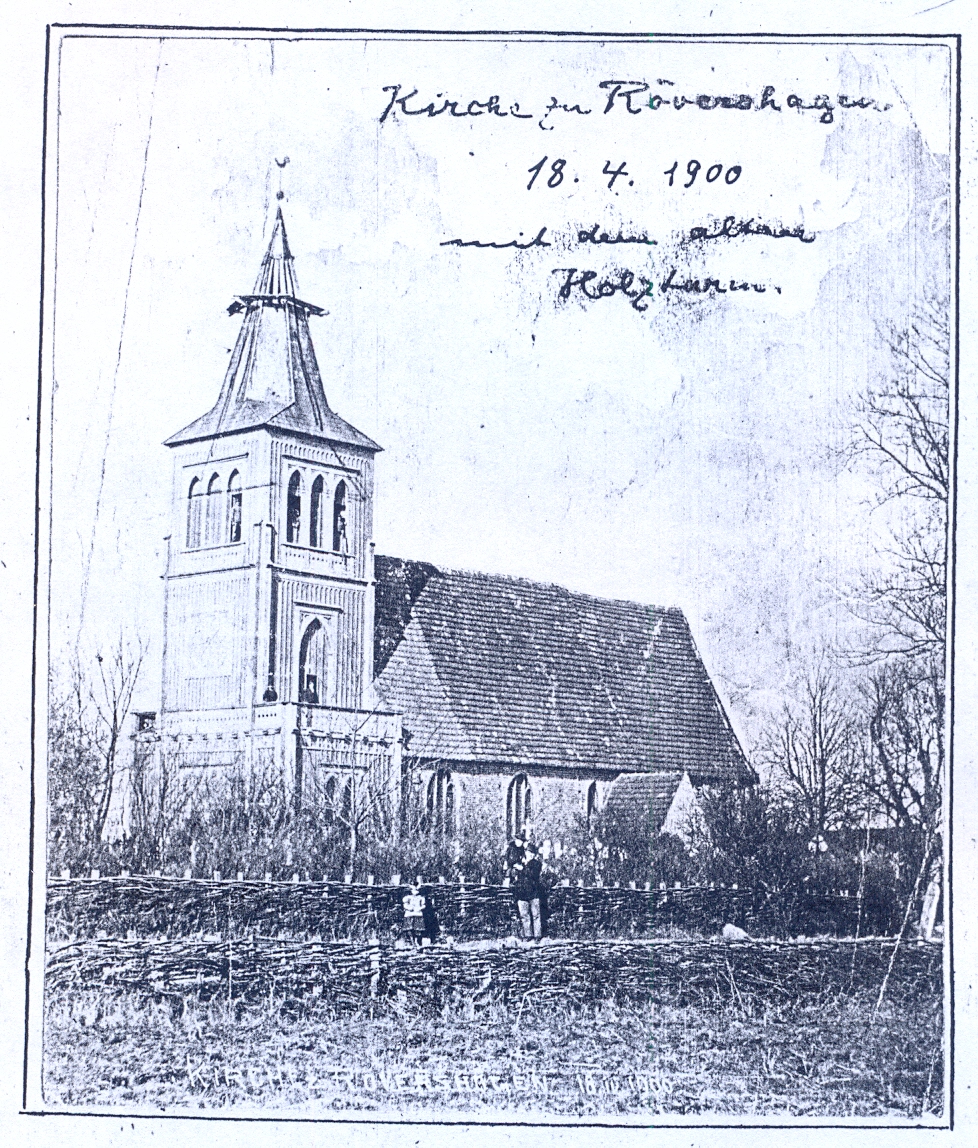 Kirche zu Rövershagen
18. 4. 1900
mit dem alten
Holzturm.
KIRCHE Z ROVERSHAGEN 18 IV 1900